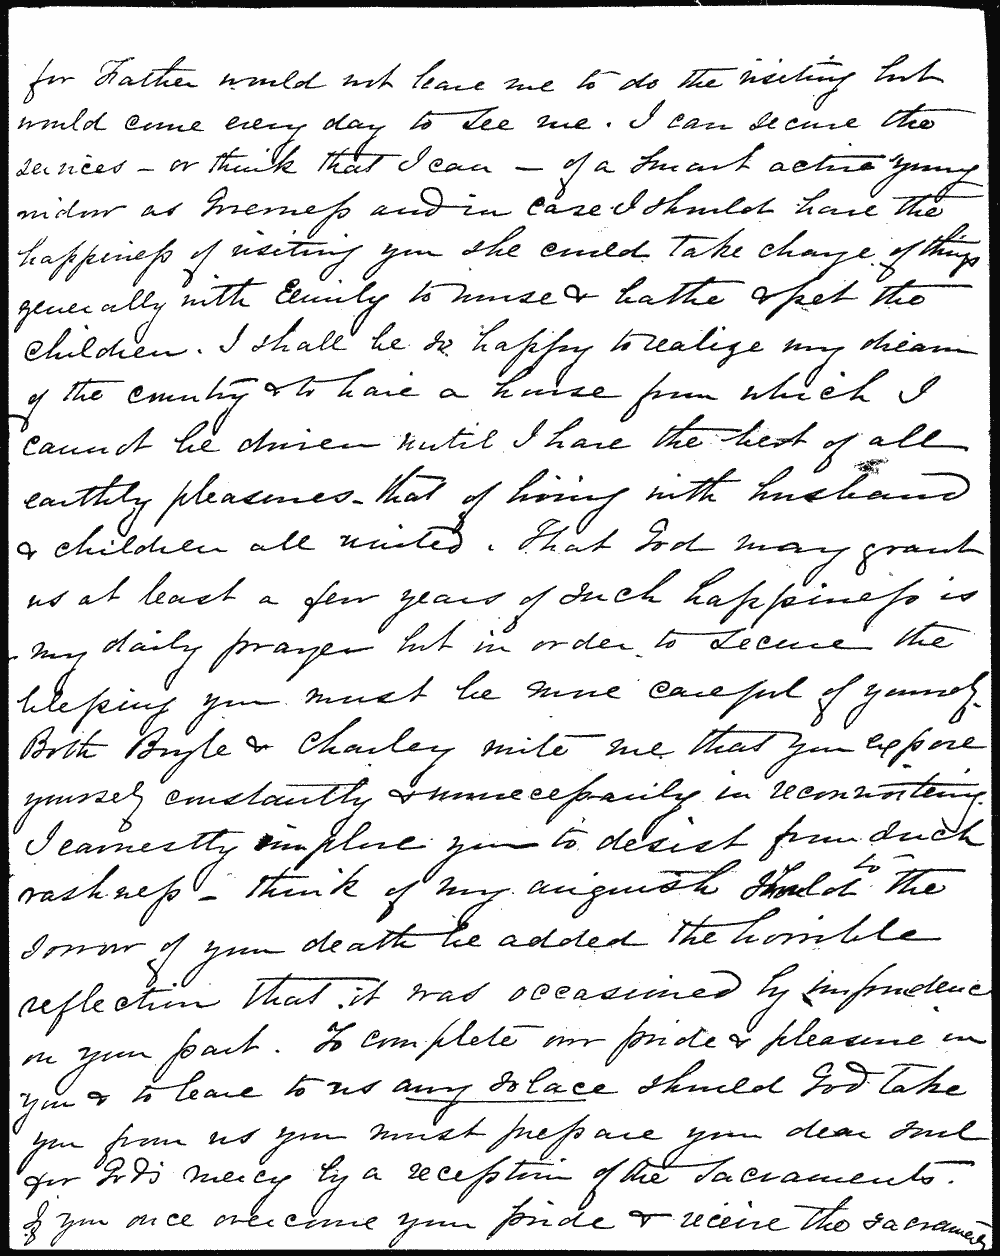 for Father would not leave me to do the visiting but
would come every day to see me. I can secure the
services – or think that I can – of a smart active young
widow as Governess and in case I should have the
happiness of visiting you she could take charge of things
generally with Emily to nurse & bathe & pet the
children. I shall be so happy to realize my dream
of the country & to have a house from which I
cannot be driven until I have the best of all
earthly pleasures – that of living with husband
& children all united. That God may grant
us at least a few years of such happiness is
my daily prayer but in order to secure the
blessing you must be more careful of yourself.
Both Boyle & Charley write me that you expose
yourself constantly & unnecessarily in reconnoitering.
I earnestly implore you to desist from such
rashness – think of my anguish should to the
sorrow of your death be added the horrible
reflection that it was occasioned by imprudence
on your part. To complete our pride & pleasure in
you & to leave to us any solace should God take
you from us you must prepare your dear soul
for God's mercy by a reception of the Sacraments.
If you once overcome your pride & receive the sacraments